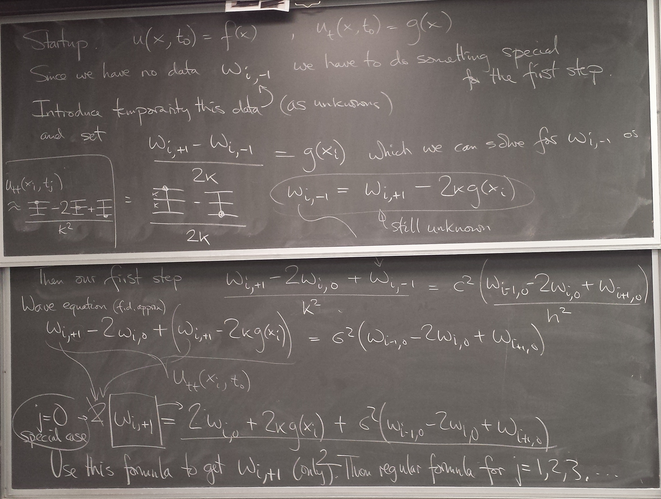 Startup. u(x,t₀) = f(x) , u_t(x,t₀) = g(x)
Since we have no data w_{i,-1} we have to do something special
for the first step.
Introduce temporarily this data (as unknowns)
and set (w_{i,+1} - w_{i,-1})/2k = g(x_i) which we can solve for w_{i,-1} as
w_{i,-1} = w_{i,+1} - 2kg(x_i)
still unknown
u_{tt}(x_i,t_j)
Then our first step (w_{i,+1} - 2w_{i,0} + w_{i,-1})/k² = c² (w_{i-1,0} - 2w_{i,0} + w_{i+1,0})/h²
Wave equation (f.d. approx)
w_{i,+1} - 2w_{i,0} + (w_{i,+1} - 2kg(x_i)) = σ²(w_{i-1,0} - 2w_{i,0} + w_{i+1,0})
u_{tt}(x_i,t₀)
j=0 → 2 w_{i,+1} = 2w_{i,0} + 2kg(x_i) + σ²(w_{i-1,0} - 2w_{i,0} + w_{i+1,0})
special case 2
Use this formula to get w_{i,+1} (only). Then regular formula for j=1,2,3,...